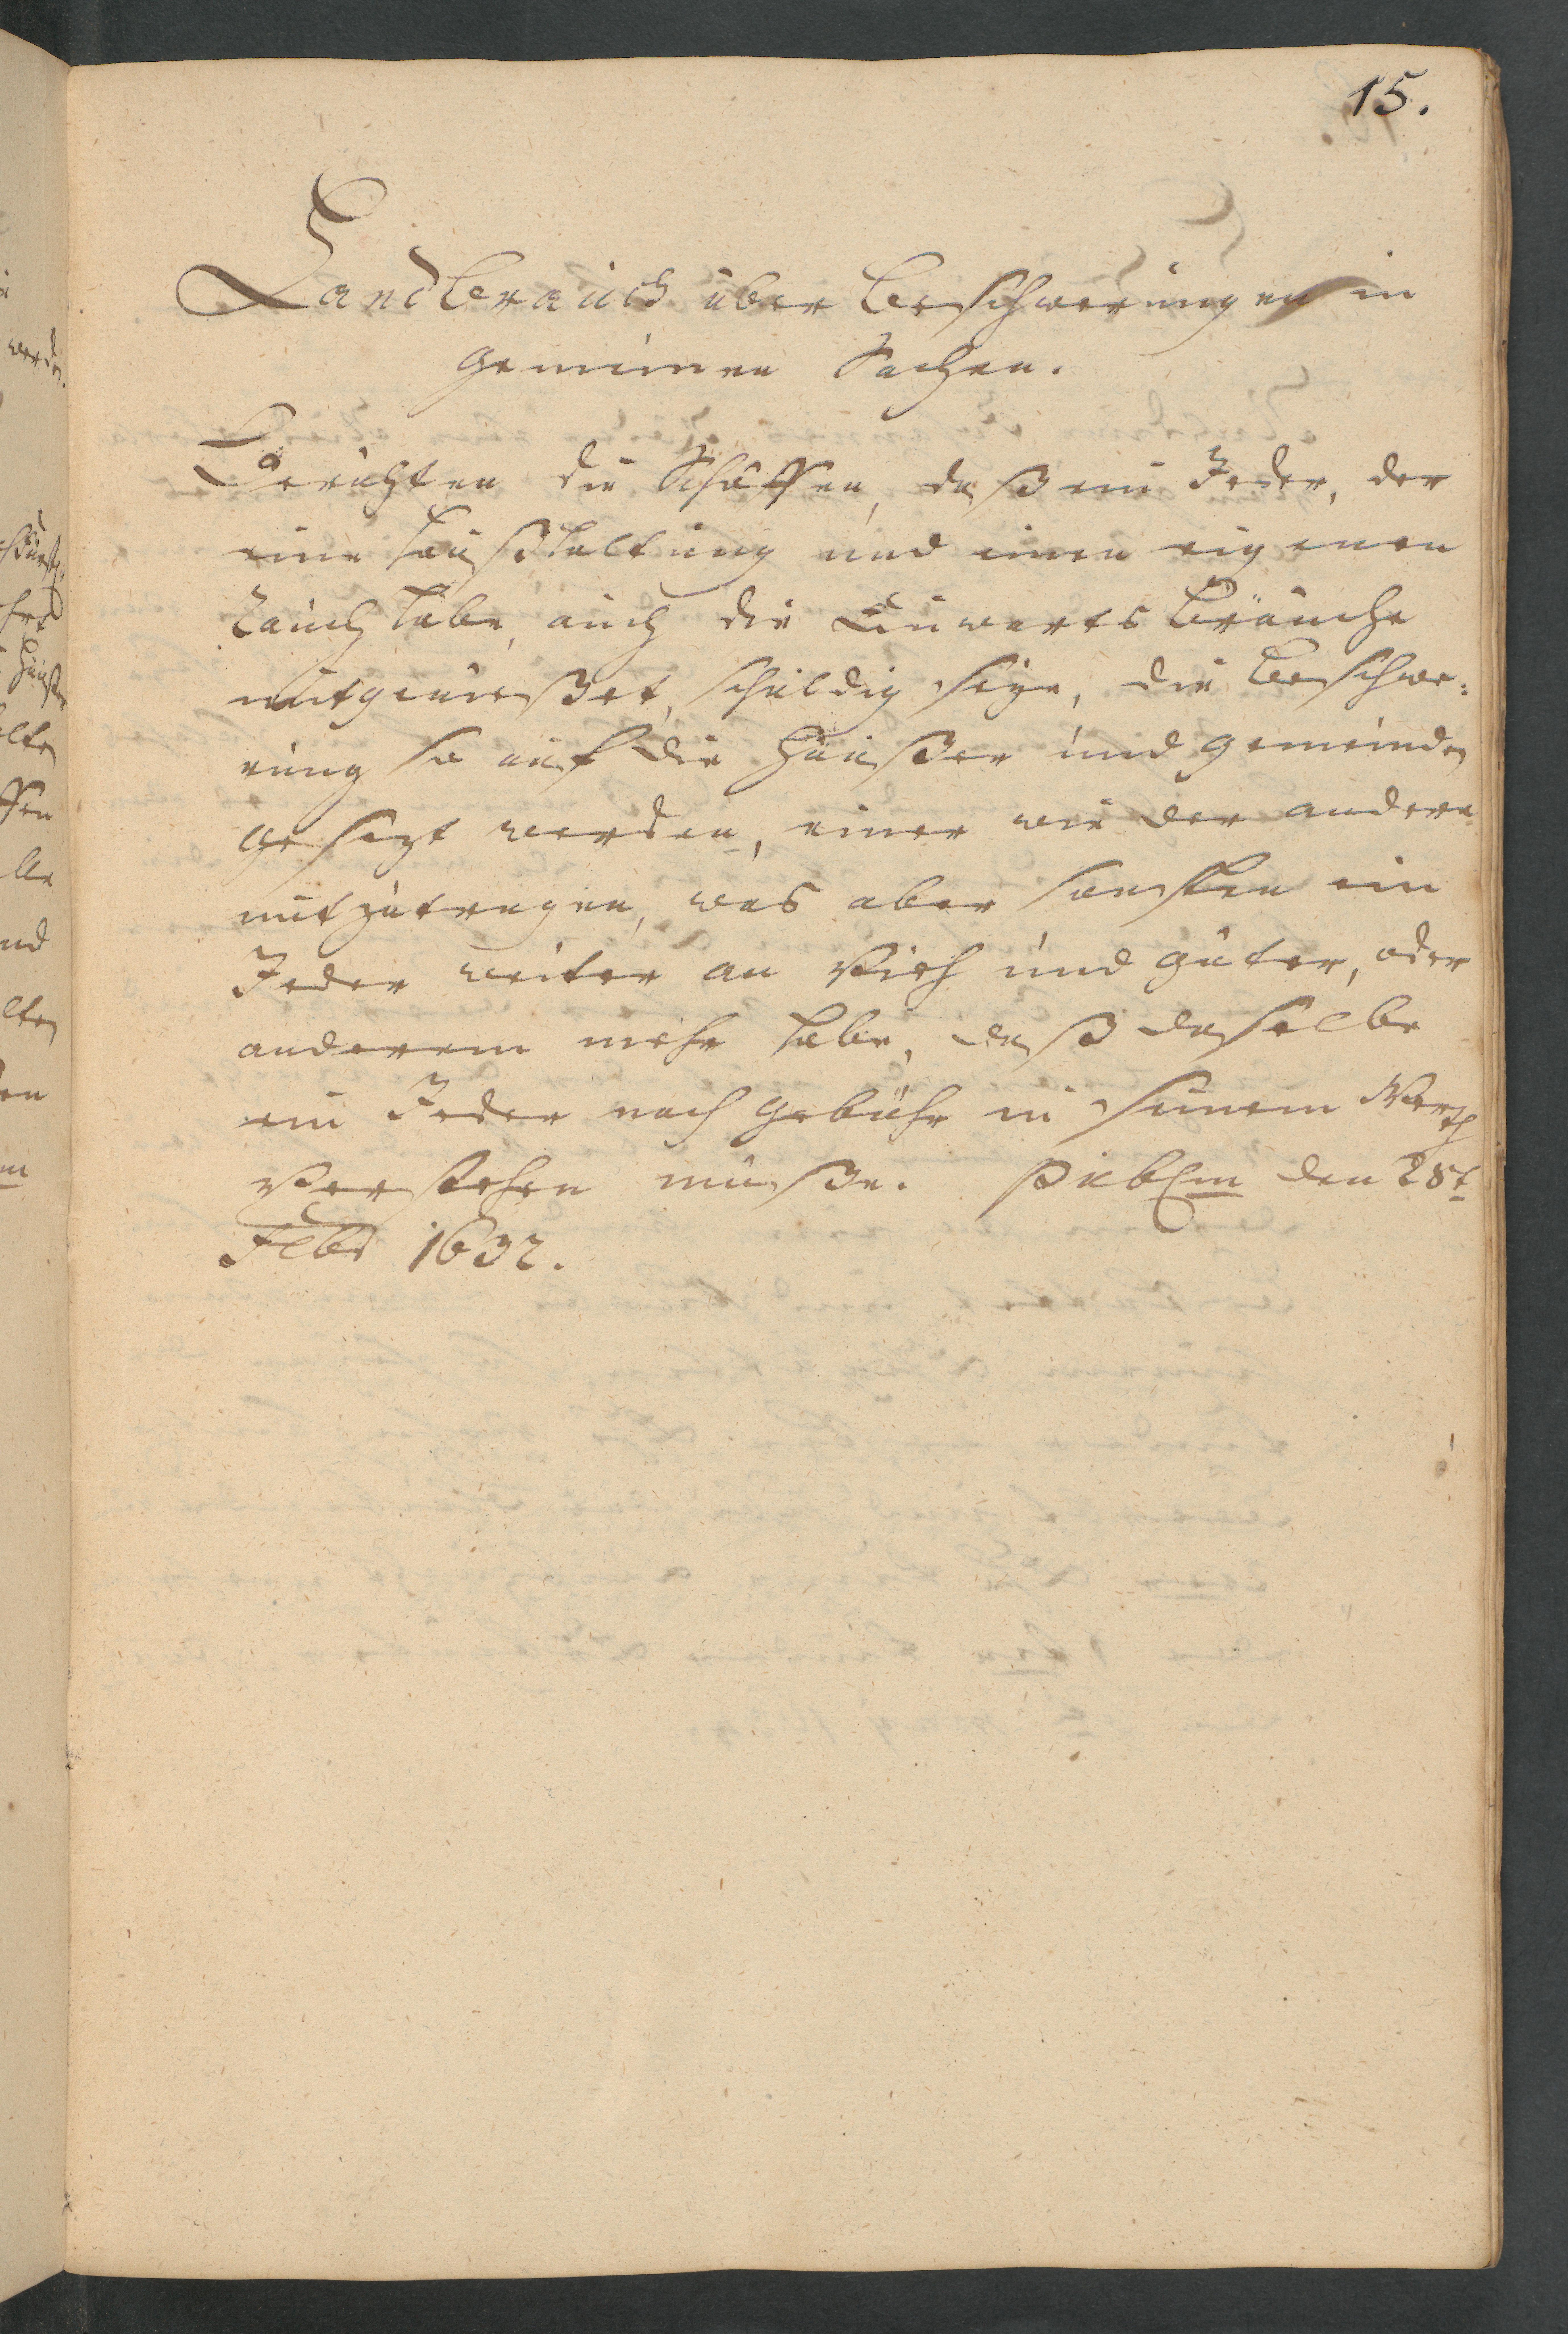 15.
Landbrauch über Beschwerungen in
gemeinen Sachen.
Berichten die Schöffen, daß ein Jeder, der
eine Haußhaltung und einen eigenen
Rauch habe, auch die Bräuche
mitgeniesset, schuldig seye, die Beschwe:
rung so auf die Häusser und Gemeinden
gesezt werden, einer wie der andere
mitzutragen, was aber sonsten ein
Jeder weiter an Vieh und Güter, oder
anderem mehr habe, daß dasselbe
ein Jeder nach Gebühr in seinem Werth
verstehen müsse. Publm den 28t
Febr 1632.